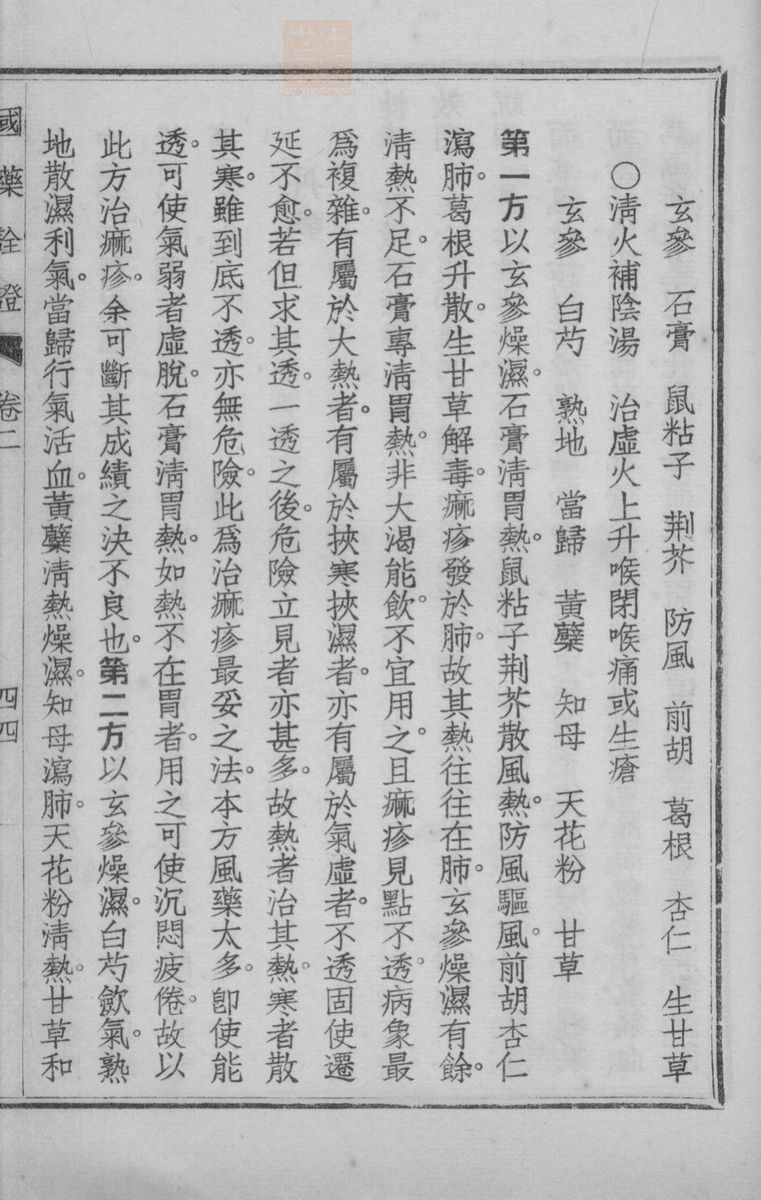 玄參　石膏　鼠粘子　荆芥　防風　前胡　葛根　杏仁　生甘草
○淸火補陰湯　治虛火上升喉閉喉痛或生瘡
玄參　白芍　熟地　當歸　黃蘗　知母　天花粉　甘草
第一方以玄參燥濕。石膏淸胃熱。鼠粘子荆芥散風熱。防風驅風。前胡杏仁
瀉肺。葛根升散。生甘草解毒。痲疹發於肺。故其熱往往在肺。玄參燥濕有餘。
淸熱不足。石膏專淸胃熱。非大渴能飲。不宜用之。且痲疹見點不透。病象最
爲複雜。有屬於大熱者。有屬於挾寒挾濕者。亦有屬於氣虛者。不透固使遷
延不愈。若但求其透。一透之後。危險立見者亦甚多。故熱者治其熱。寒者散
其寒。雖到底不透。亦無危險。此爲治痲疹最妥之法。本方風藥太多。卽使能
透。可使氣弱者虛脫。石膏淸胃熱。如熱不在胃者。用之可使沉悶疲倦。故以
此方治痲疹。余可斷其成績之決不良也。第二方以玄參燥濕。白芍歛氣。熟
地散濕利氣。當歸行氣活血。黃蘗淸熱燥濕。知母瀉肺。天花粉淸熱。甘草和
國藥詮證　卷二　四四